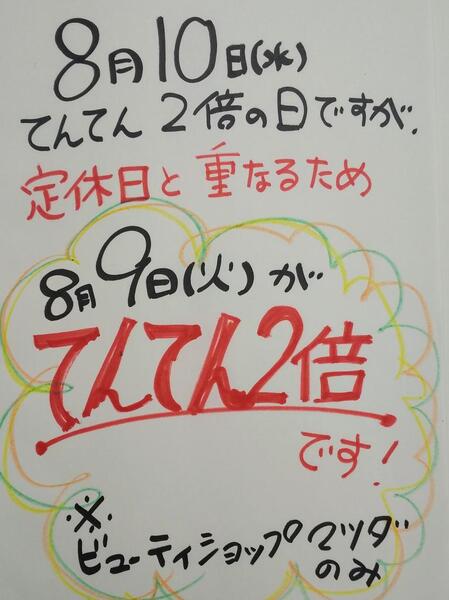 8月10日(水)
てんてん 2倍の日ですが、
定休日と重なるため
8月9日(火)が
てんてん2倍
です!
※
ビューティショップマツダ
のみ